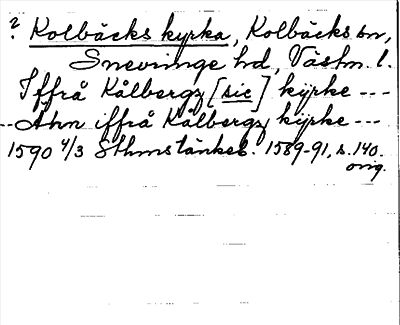 ? Kolbäcks kyrka, Kolbäcks sn,
Snevringe hd, Västm. l.
Iffrå Kålbergz [sic] kyrke ---
-- Ahn iffrå Kålbergz kyrke ---
1590 4/3 Sthms tänkeb. 1589-91, s. 140.
orig.